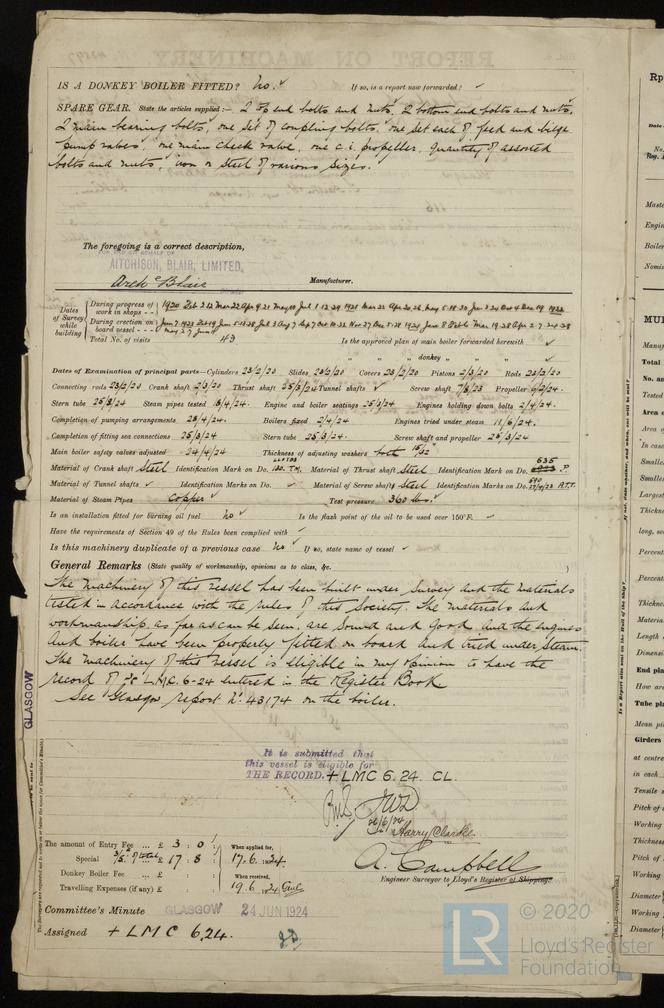 IS A DONKEY BOILER FITTED? No. ✓ If so, is a report now forwarded? ✓
SPARE GEAR. State the articles supplied:— 2 top end bolts and nuts, 2 bottom end bolts and nuts,
2 main bearing bolts, one set of coupling bolts, one set each of feed and bilge
pump valves, one main check valve, one c.i. propeller, quantity of assorted
bolts and nuts, iron or steel of various sizes.
The foregoing is a correct description,
FOR AND ON BEHALF OF
AITCHISON, BLAIR, LIMITED,
Arch. Blair Manufacturer.
Dates of Survey while building
During progress of work in shops - - 1920 Feb
During erection on board vessel - - -
Total No. of visits 43 Is the approved plan of main boiler forwarded herewith ✓
" " " donkey " " "
Dates of Examination of principal parts—Cylinders 23/2/20 Slides 23/2/20 Covers 23/2/20 Pistons 2/3/20 Rods 23/2/20
Connecting rods 23/2/20 Crank shaft 2/3/20 Thrust shaft 25/3/24 Tunnel shafts ✓ Screw shaft 7/6/23 Propeller
Stern tube 25/3/24 Steam pipes tested Engine and boiler seatings 25/3/24 Engines holding down bolts 2/4/24.
Completion of pumping arrangements 28/4/24. Boilers fixed 2/4/24 Engines tried under steam 11/6/24.
Completion of fitting sea connections 25/3/24 Stern tube 25/3/24. Screw shaft and propeller 25/3/24
Main boiler safety valves adjusted 24/4/24 Thickness of adjusting washers both 15/32
Material of Crank shaft Steel Identification Mark on Do. Material of Thrust shaft Steel Identification Mark on Do. 635
Material of Tunnel shafts ✓ Identification Marks on Do. ✓ Material of Screw shafts Steel Identification Marks on Do.
Material of Steam Pipes Copper ✓ Test pressure 360 lbs. ✓
Is an installation fitted for burning oil fuel No ✓ Is the flash point of the oil to be used over 150°F. ✓
Have the requirements of Section 49 of the Rules been complied with ✓
Is this machinery duplicate of a previous case No ✓ If so, state name of vessel ✓
General Remarks (State quality of workmanship, opinions as to class, &c. )
The machinery of this vessel has been built under survey and the materials
tested in accordance with the rules of this Society. The materials and
workmanship, as far as can be seen, are sound and good and the engines
and boiler have been properly fitted on board and tried under steam.
The machinery of this vessel is eligible in my opinion to have the
record of + LMC. 6-24 entered in the Register Book
See Glasgow report No. 43174 on the boiler.
GLASGOW
It is submitted that
this vessel is eligible for
THE RECORD. + LMC 6.24. CL.
Harry Clarke.
The amount of Entry Fee ... £ 3 : 0 : When applied for,
Special £ 17 : 8 : 17.6.1924.
Donkey Boiler Fee ... £ : : When received,
Travelling Expenses (if any) £ : : 19.6.1924
A. Campbell
Engineer Surveyor to Lloyd's Register of Shipping.
Committee's Minute GLASGOW 24 JUN 1924
Assigned + LMC 6,24.
LR © 2020
Lloyd's Register
Foundation